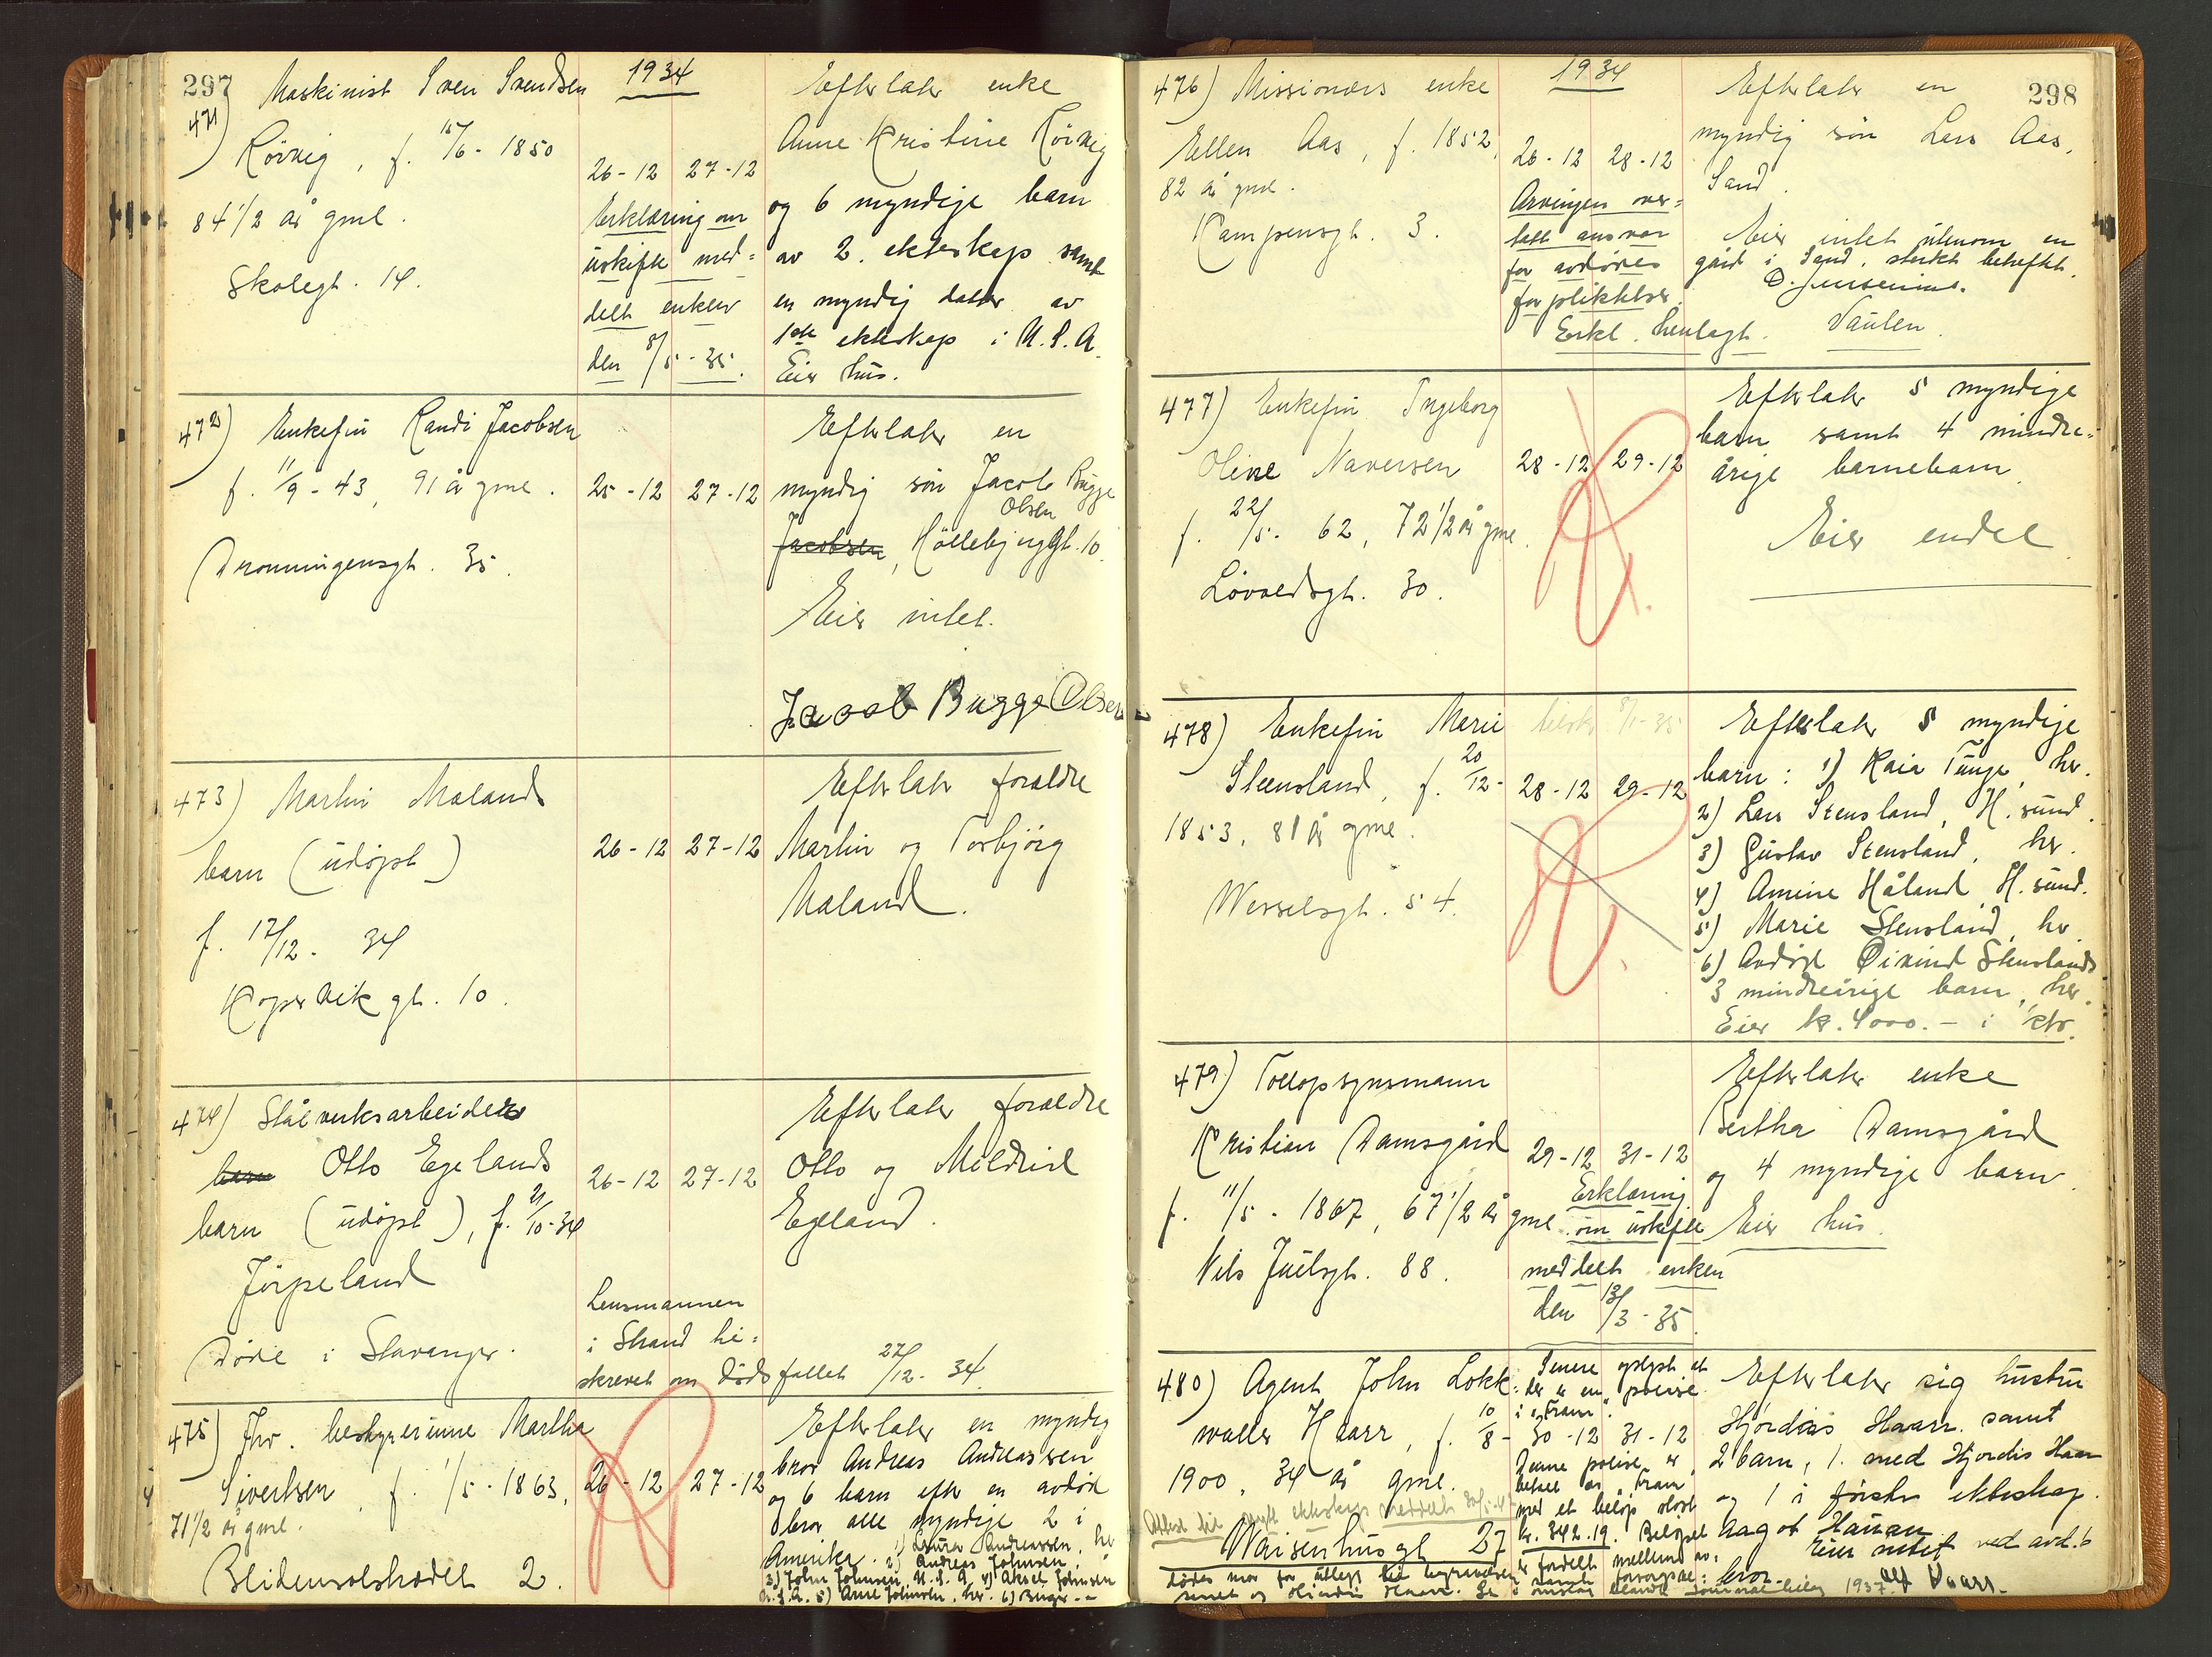 297
1934
471) Maskinist Sven Svendsen
Rörvig, f. 15/6 - 1850
84 1/2 år gml.
Skolegt. 14.
26-12 27-12
Erklæring om
uskifte med=
delt enken
den 8/5 - 35.
Efterlater enke
Anne Kristine Rörvig
og 6 myndige barn
av 2. ekteskap samt
en myndig datter av
1ste ekteskap i U.S.A.
Eier hus.
472) Enkefru Randi Jacobsen
f. 11/9 - 43, 91 år gml.
Dronningensgt. 35.
25-12 27-12
Efterlater en
myndig sön Jacob Bugge
Olsen
Jacobsen, Höllebyggt. 10.
Eier intet.
Jacob Bugge Olsen
473) Martin Maland
barn (udöpt)
f. 17/12 - 34
Kopervikgt. 10.
26-12 27-12
Efterlater foreldre
Martin og Torbjörg
Maland.
474) Stålverksarbeider
barn Otto Egelands
barn (udöpt), f. 21/10-34
Jörpeland
Döde i Stavanger.
26-12 27-12
Lensmannen
i Strand til=
skrevet om dödsfallet 27/12 - 34.
Efterlater foreldre
Otto og Mildrid
Egeland.
475) Fhv. bestyrerinne Martha
Sivertsen, f. 1/5 - 1863,
71 1/2 år gml.
Blidensolstredet 2.
26-12 27-12
Efterlater en myndig
bror Andreas Andreassen
og 6 barn efter en avdöd
bror alle myndige 2 i
Amerika. 1) Laura Andreassen, her
2) Andreas Johnsen,
3) John Johnsen, U.S.A. 4) Aksel Johnsen
U.S.A. 5) Arne Johnsen, her. 6) Birger -"-
298
1934
476) Missionærs enke
Ellen Aas, f. 1852,
82 år gml.
Kampensgt. 3.
26-12 28-12
Arvingen over=
tatt ansvar
for avdödes
forpliktelser.
Erkl. henlagt.
Efterlater en
myndig sön Lars Aas,
Sand.
Eier intet utenom en
gård i Sand, sterkt beheftet.
Vaulen.
477) Enkefru Ingeborg
Oline Naversen
f. 22/5 - 62, 72 1/2 år gml.
Lövoldsgt. 30.
28-12 29-12
Efterlater 5 myndige
barn samt 4 mindre=
årige barnebarn.
Eier endel
478) Enkefru Marie
Steensland, f. 20/12 -
1853, 81 år gml.
Wesselsgt. 54.
8/1-35
28-12 29-12
Efterlater 5 myndige
barn: 1) Kaia Tunge, her.
2) Lars Stensland, H.sund.
3) Gustav Stensland, her.
4) Amine Håland, H.sund.
5) Marie Stensland, her
6) Avdöde Öivind Stenslands
3 mindreårige barn, her.
Eier kr. 4000.- i ktr.
479) Tollopsynsmann
Kristian Damsgård
f. 11/5 - 1867, 67 1/2 år gml.
Nils Juelsgt. 88.
29-12 31-12
Erklæring
om uskifte
meddelt enken
den 13/3 - 35.
Efterlater enke
Bertha Damsgård
og 4 myndige barn.
Eier hus.
480) Agent John Lokk=
waller Haarr, f. 10/8 -
1900, 34 år gml.
Waisenhusgt 27
Senere oplyst at
der er en polise
i "Fram".
30-12 31-12
Denne polise er
betalt av "Fram"
med et belöp stort
kr. 342.19. Belöpet
er fordelt mellem av=
dödes mor for utlegg til begravelsen
Efterlater sig hustru
Hjördis Haarr. samt
2 barn, 1. med Hjordis Haarr
og 1 i förste ekteskap.
Aagot Hauan
Eier intet ved avd.s
bror. Alf Haarr.